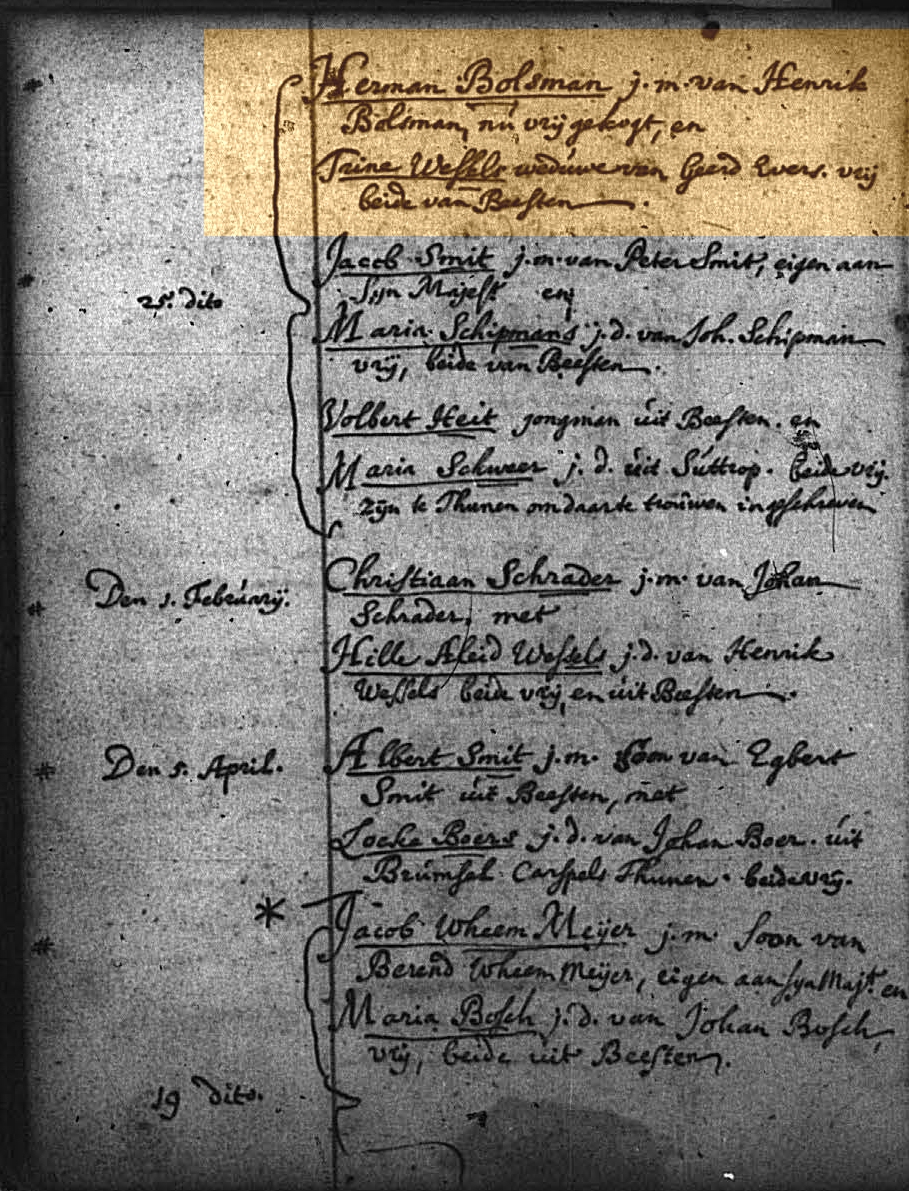 Herman Bolsman j. m. van Henrik
Bolsman, nú vrij gekogt, en
Trine Wessels wedúwe van Geerd Evers. vrij
beide van Beesten.
Jacob Smit j. m. van Peter Smit, eigen aan
Sijn Majest en
25. dito
Maria Schipmans j. d. van Joh. Schipman
vrij, beide van Beesten.
Volbert Heit jongman úit Beesten. en
Maria Schweer j. d. úit Súttrop. beide vrij.
zijn te Thunen om daar te troúwen ingeschreven
Den 1. Febrúarij.
Christiaan Schrader j. m. van Johan
Schrader, met
Hille Aleid Wessels j. d. van Henrik
Wessels beide vrij, en úit Beesten.
Den 5. April.
Albert Smit j. m. Soon van Egbert
Smit úit Beesten, met
Locke Boers j. d. van Johan Boer. úit
Brúmsel Carspels Thunen. beide vrij.
*
Jacob Wheem Meijer j. m. Soon van
Berend Wheem Meijer, eigen aan sijn Majt. en
Maria Bosch j. d. van Johan Bosch,
vrij, beide uit Beesten.
19 dito.